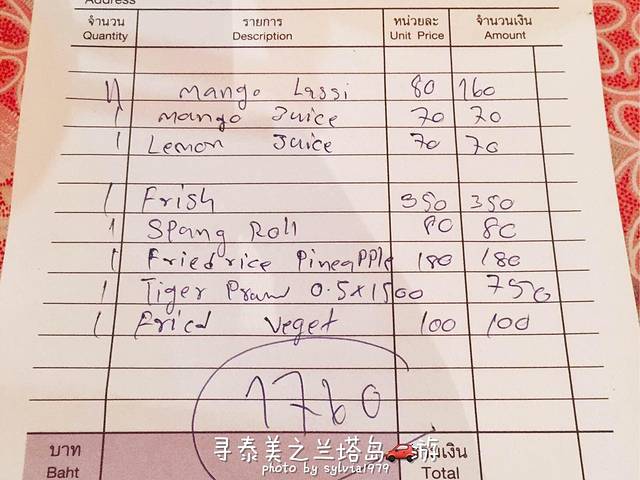 Address
จำนวน รายการ หน่วยละ จำนวนเงิน
Quantity Description Unit Price Amount
Mango Lassi 80 160
1 Mango Juice 70 70
1 Lemon Juice 70 70
1 Frish 350 350
1 Spang Roll 80 80
1 Fried rice PineaPPle 180 180
1 Tiger Prawn 0.5x1500 750
1 Fried Veget 100 100
1760
บาท
寻泰美之兰塔岛 游
Baht photo by sylvia1979 Total